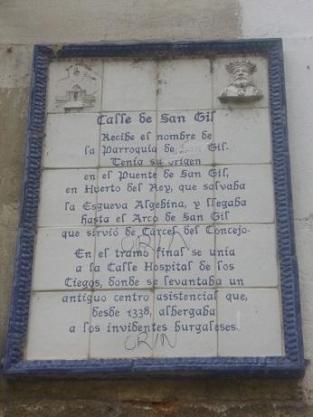 Calle de San Gil
Recibe el nombre de
la Parroquia de San Gil.
Tenía su origen
en el Puente de San Gil,
en Huerto del Rey, que salvaba
la Esgueva Algebina, y llegaba
hasta el Arco de San Gil
que sirvió de Cárcel del Concejo.
En el tramo final se unía
a la Calle Hospital de los
Ciegos, donde se levantaba un
antiguo centro asistencial que,
desde 1338, albergaba
a los invidentes burgaleses.